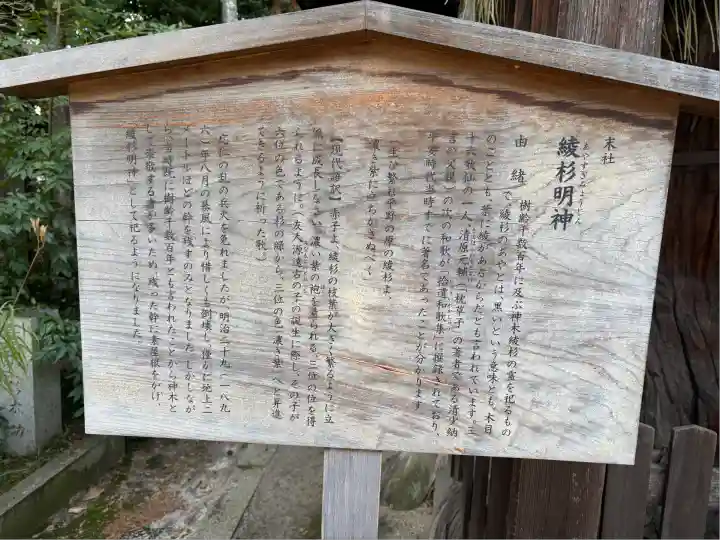 末社
綾杉明神
あやすぎみょうじん
由緒 樹齢千数百年に及ぶ神木綾杉の霊を祀るもの
で、綾杉のあやとは、黒いという意味とも、木目
のことも、葉に綾があるからだとも言われています。三
十六歌仙の一人、清原元輔(「枕草子」の著者である清少納
言の父親)の次の和歌が「拾遺和歌集」に掲録されており、
平安時代当時すでに著名であったことが分かります。
生ひ繁れ平野の原の綾杉よ、
濃き紫に立ちかさぬべく
【現代語訳】赤子よ、綾杉の枝葉が大きく繁るように立
派に成長しなさい。濃い紫の袍を着られる、三位の位を得
られるように。(友人源遠古の子の誕生に際し、その子が
六位の色である杉の緑から、三位の色「濃き紫」へと昇進
できるように祈った歌。)
応仁の乱の兵火を免れましたが、明治二十九(一八九
六)年八月の暴風により惜しくも倒壊し、僅かに地上二
メートルほどの幹を残すのみとなりました。しかしなが
ら、当時既に樹齢千数百年とも言われたことから、神木と
して崇敬する者が多いため、残った幹に素屋根をかけ、
綾杉明神として祀るようになりました。